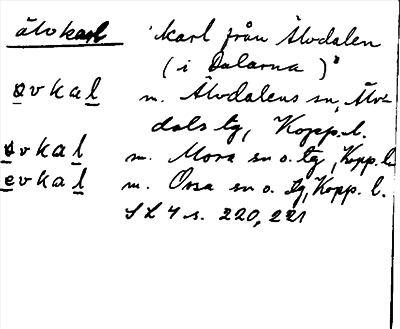 älvkarl 'karl från Älvdalen
(i Dalarna)'
ovkal m. Älvdalens sn, Älv-
dals tg, Kopp. l.
ovkal m. Mora sn o. tg, Kopp. l.
evkal m. Orsa sn o. tg, Kopp. l.
SL 4 s. 220, 221